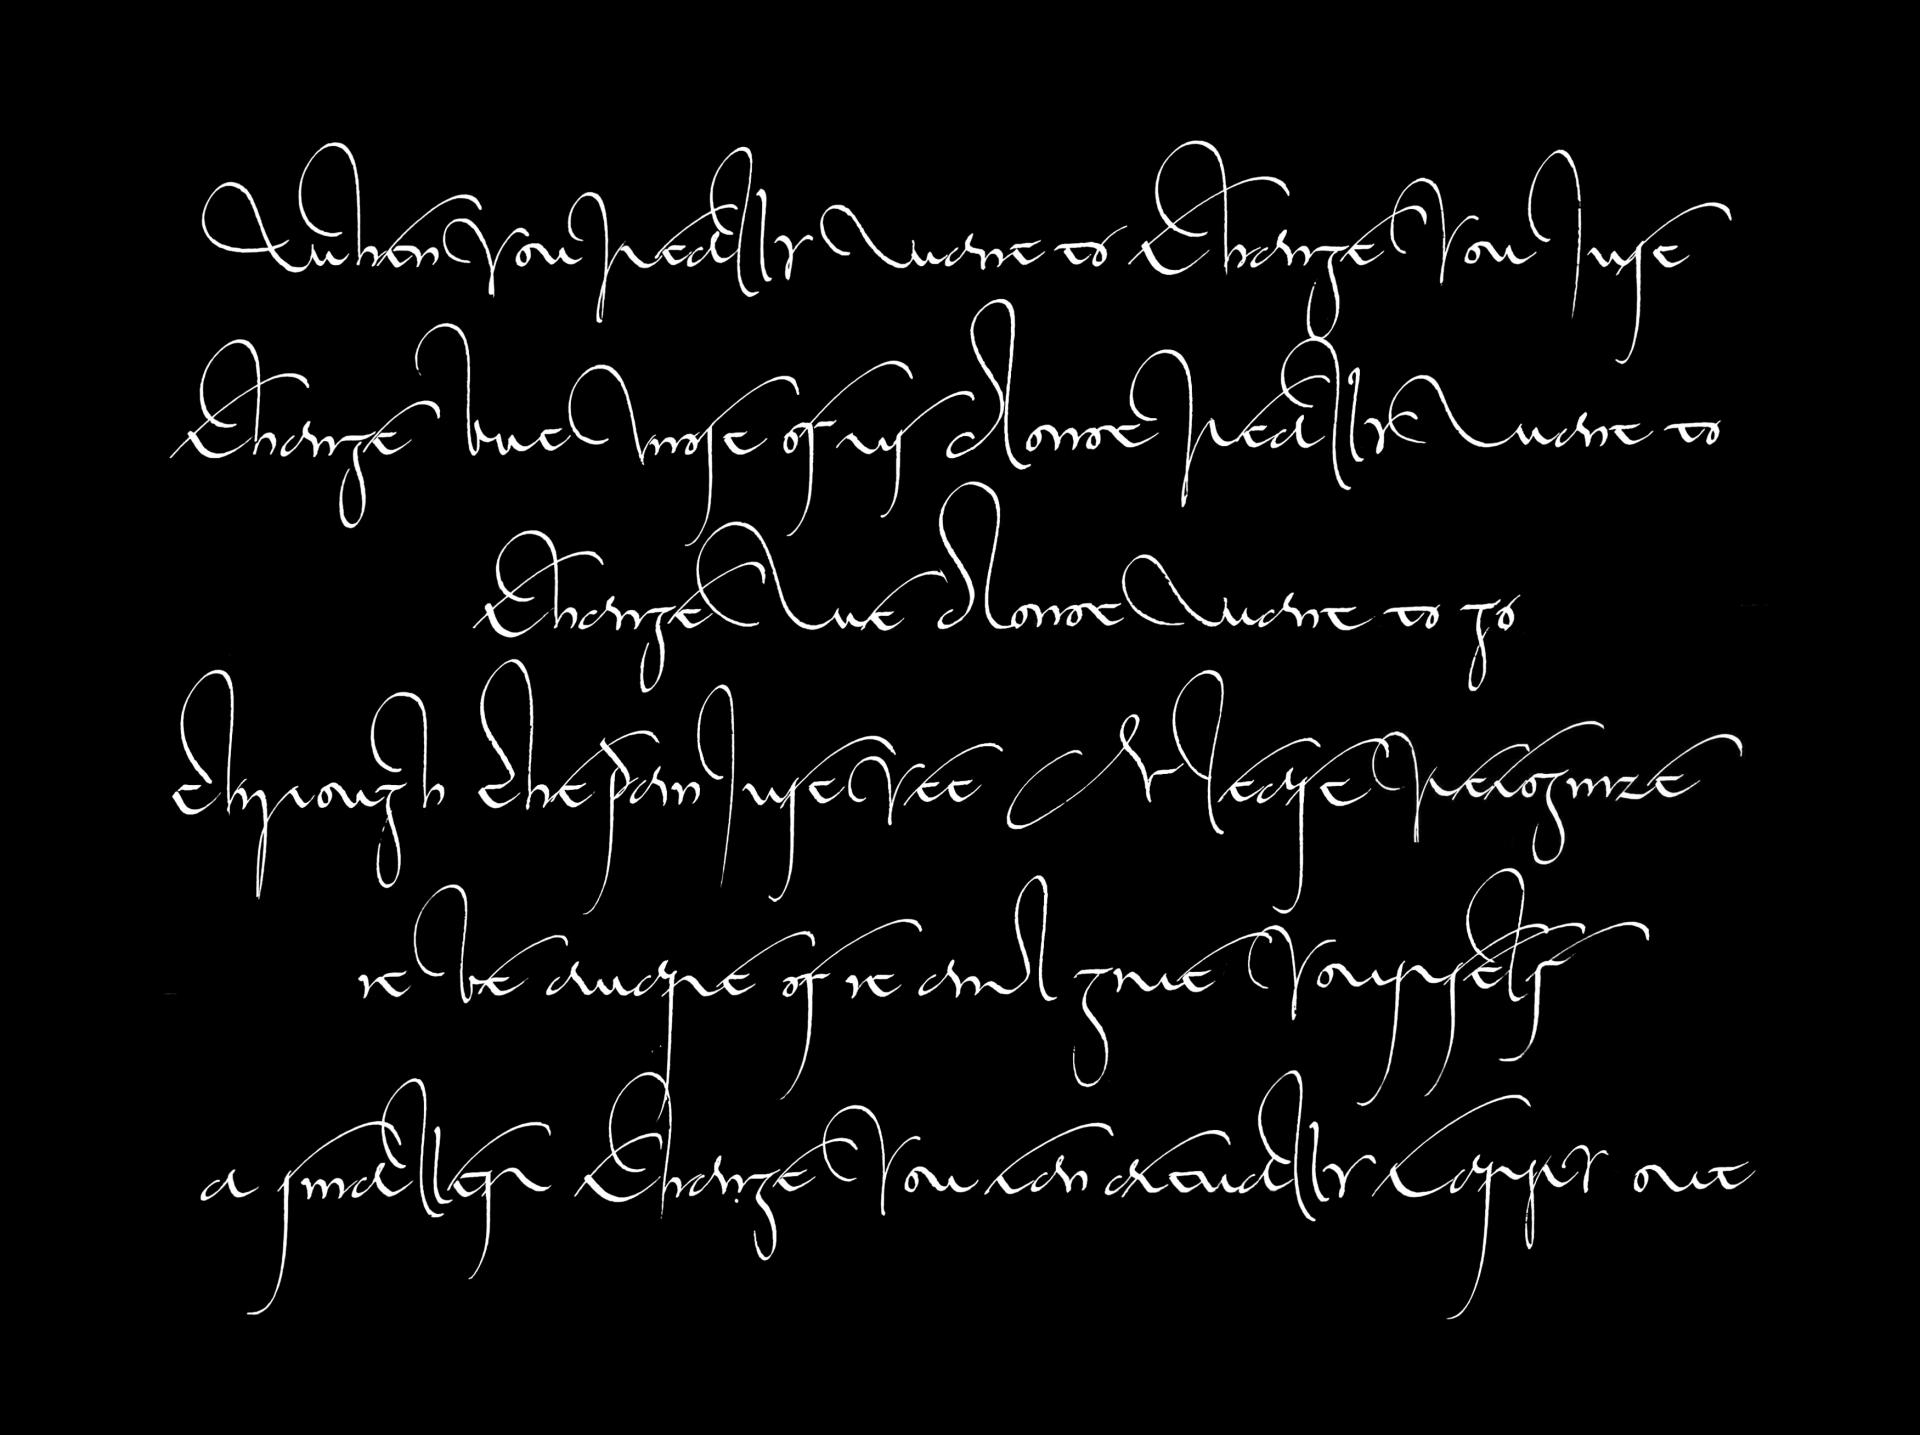 When you really want to Change you just
Change but most of us donot really want to
Change we donot want to go
through the pain just yet Please recognize
it be aware of it and give yourself
a smaller Change you can actually carry out